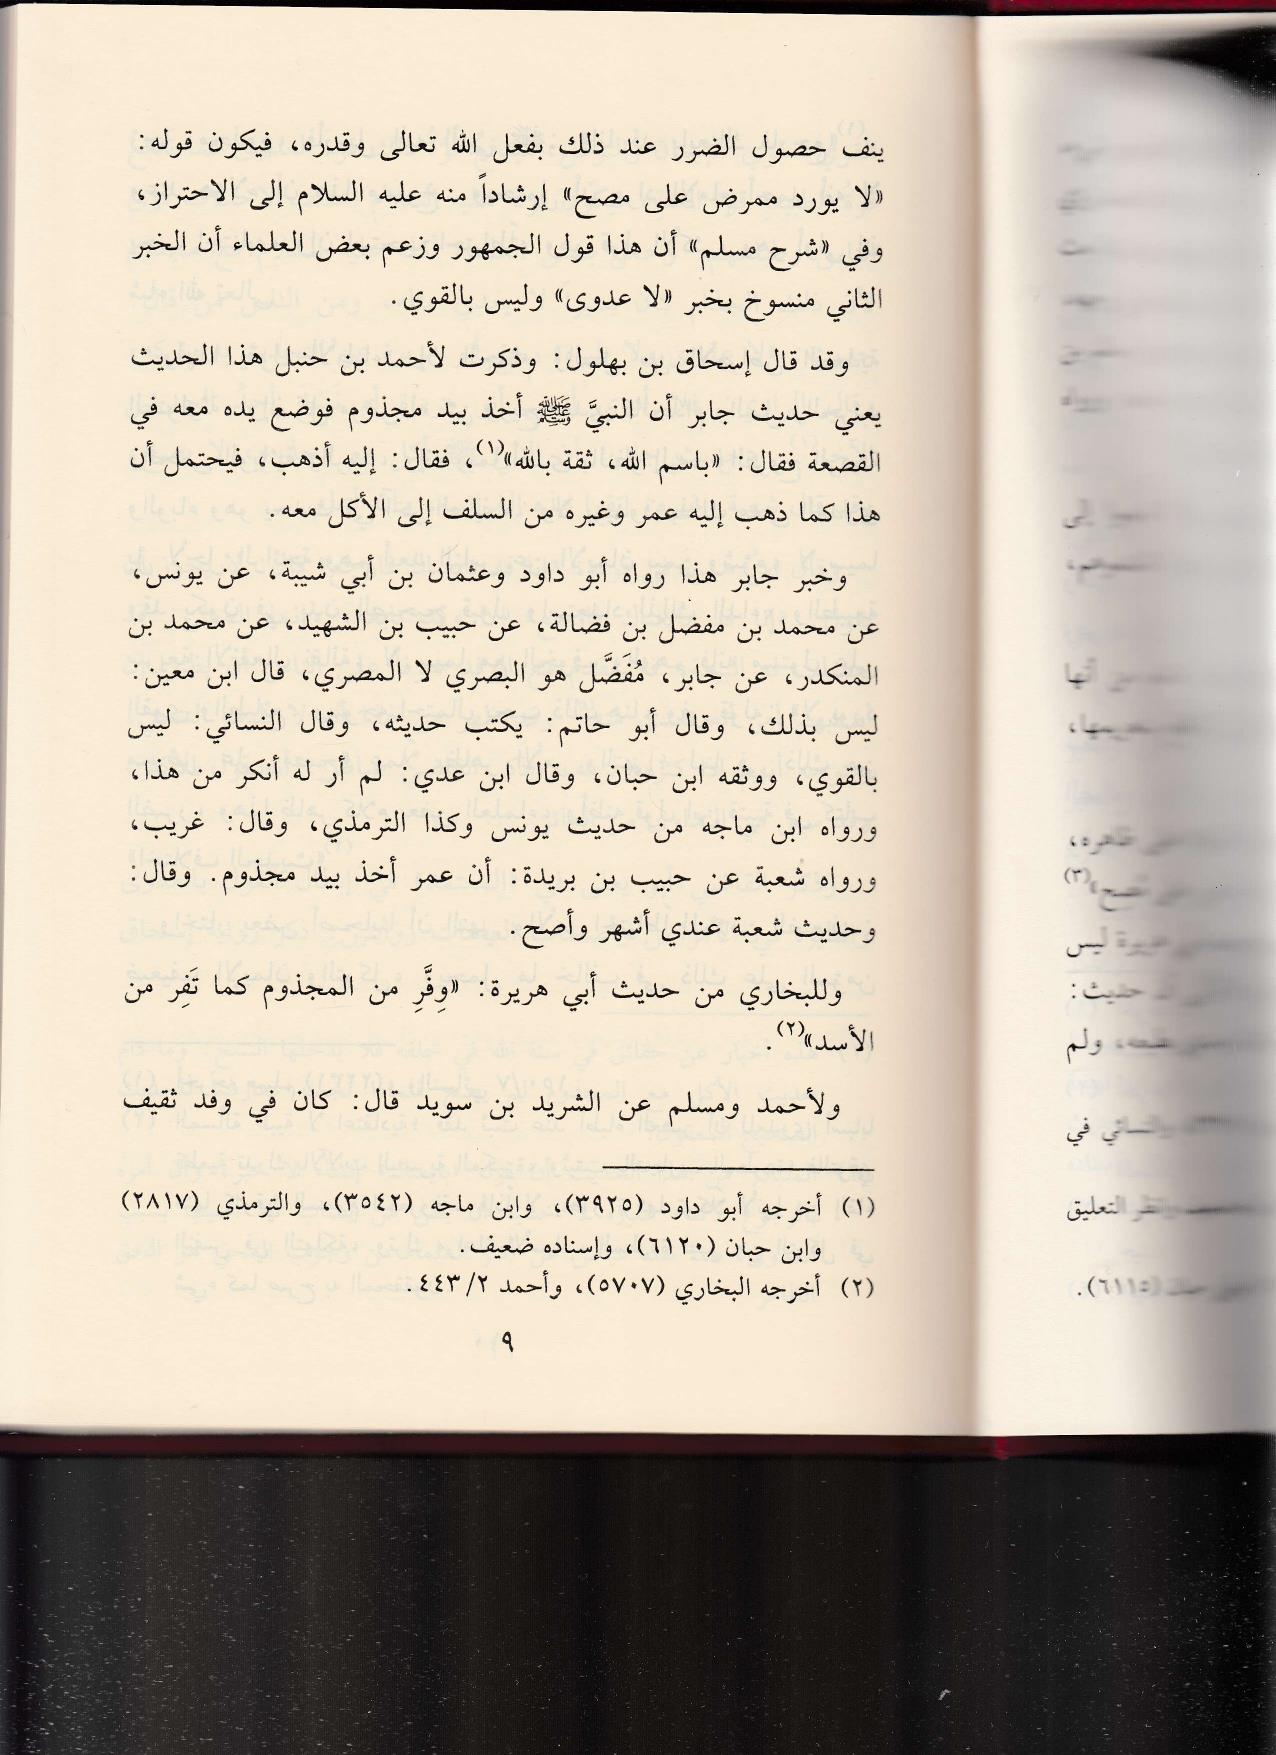 ينف حصول الضرر عند ذلك بفعل الله تعالى وقدره، فيكون قوله:
«لا يورد ممرض على مصح» إرشاداً منه عليه السلام إلى الاحتراز،
وفي «شرح مسلم» أن هذا قول الجمهور وزعم بعض العلماء أن الخبر
الثاني منسوخ بخبر «لا عدوى» وليس بالقوي.
وقد قال إسحاق بن بهلول: وذكرت لأحمد بن حنبل هذا الحديث
يعني حديث جابر أن النبيَّ ﷺ أخذ بيد مجذوم فوضع يده معه في
القصعة فقال: «باسم الله، ثقة بالله»(١)، فقال: إليه أذهب، فيحتمل أن
هذا كما ذهب إليه عمر وغيره من السلف إلى الأكل معه.
وخبر جابر هذا رواه أبو داود وعثمان بن أبي شيبة، عن يونس،
عن محمد بن مفضل بن فضالة، عن حبيب بن الشهيد، عن محمد بن
المنكدر، عن جابر، مُفَضَّل هو البصري لا المصري، قال ابن معين:
ليس بذلك، وقال أبو حاتم: يكتب حديثه، وقال النسائي: ليس
بالقوي، ووثقه ابن حبان، وقال ابن عدي: لم أر له أنكر من هذا،
ورواه ابن ماجه من حديث يونس وكذا الترمذي، وقال: غريب،
ورواه شعبة عن حبيب بن بريدة: أن عمر أخذ بيد مجذوم. وقال:
وحديث شعبة عندي أشهر وأصح.
وللبخاري من حديث أبي هريرة: «وِفَّرِ من المجذوم كما تَفِر من
الأسد»(٢).
ولأحمد ومسلم عن الشريد بن سويد قال: كان في وفد ثقيف
(١) أخرجه أبو داود (٣٩٢٥)، وابن ماجه (٣٥٤٢)، والترمذي (٢٨١٧)
وابن حبان (٦١٢٠)، وإسناده ضعيف.
(٢) أخرجه البخاري (٥٧٠٧)، وأحمد ٢/ ٤٤٣.
٩
إلى
أنها
ظاهره،
(٣)
هريرة ليس
حديث:
ولم
والنسائي في
وانظر التعليق
(٦١١٥).